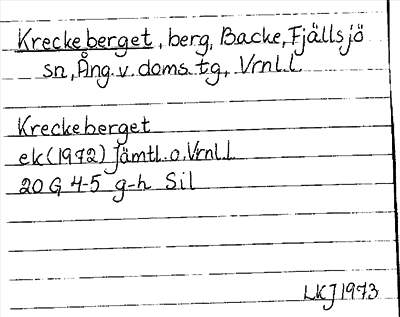 Kreckeberget, berg, Backe, Fjällsjö
sn, Ång. v. doms. tg, Vrnl.l.
Kreckeberget
ek (1972) Jämtl. o. Vrnl.l.
20 G 4-5 g-h Sil
LKJ 1973